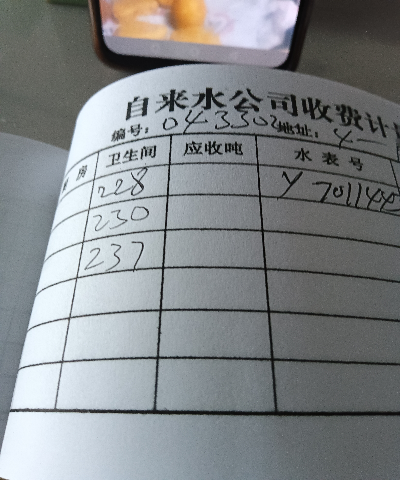 自来水公司收费计
编号: 043302 地址: 4一
房 卫生间 应收吨 水表号
228 Y701144
230
237